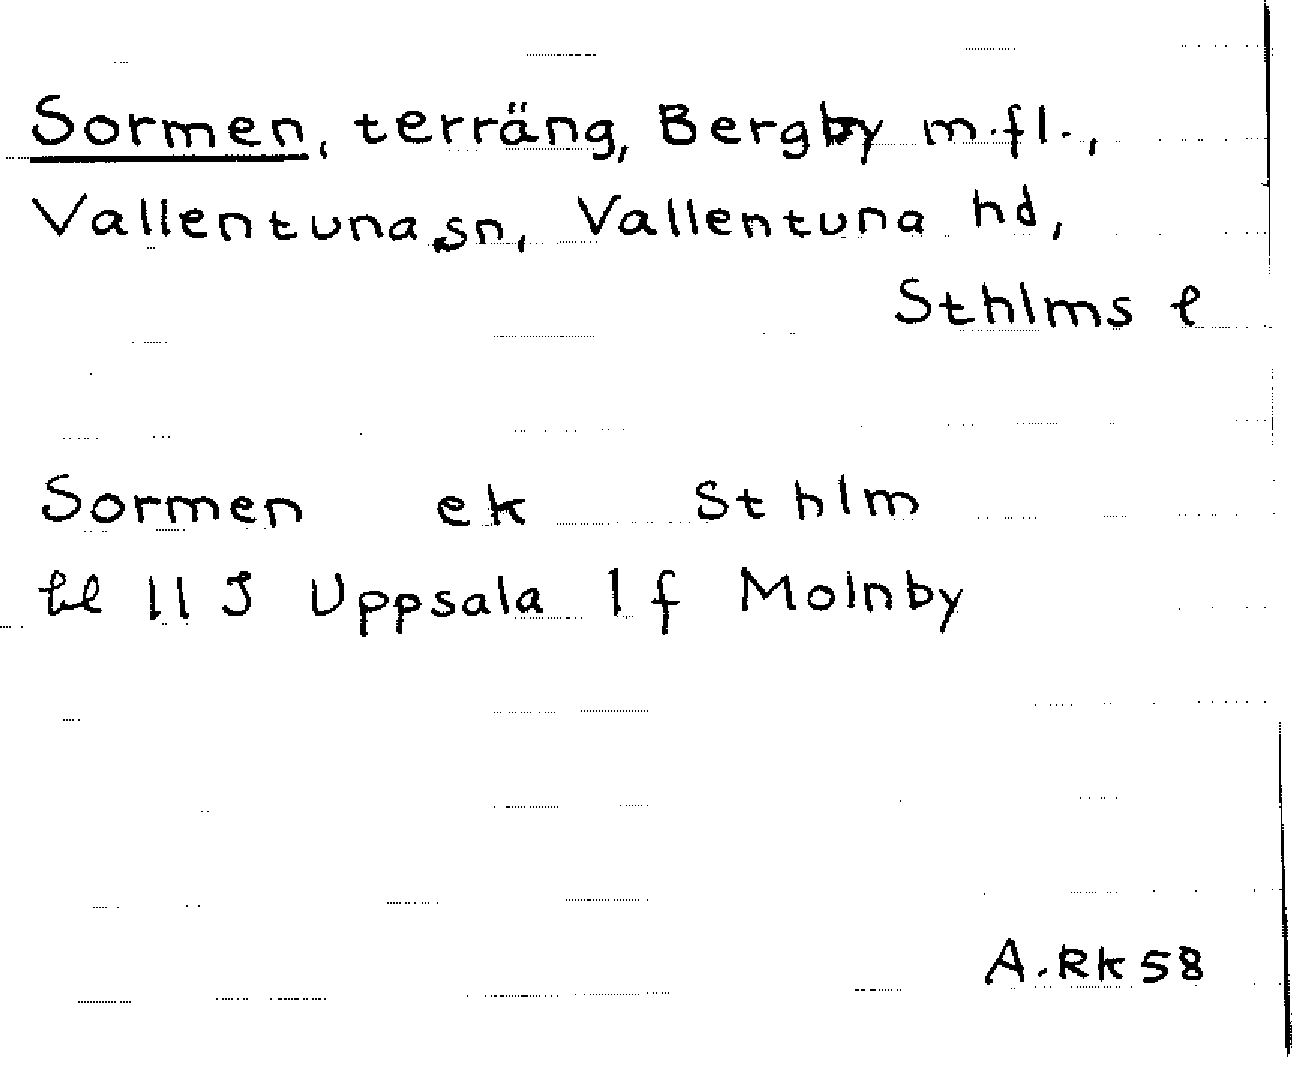 Sormen, terräng, Bergby m.fl.,
Vallentuna sn, Vallentuna hd,
Sthlms l
Sormen ek Sthlm
bl 11 J Uppsala 1 f Molnby
A.Rk 58